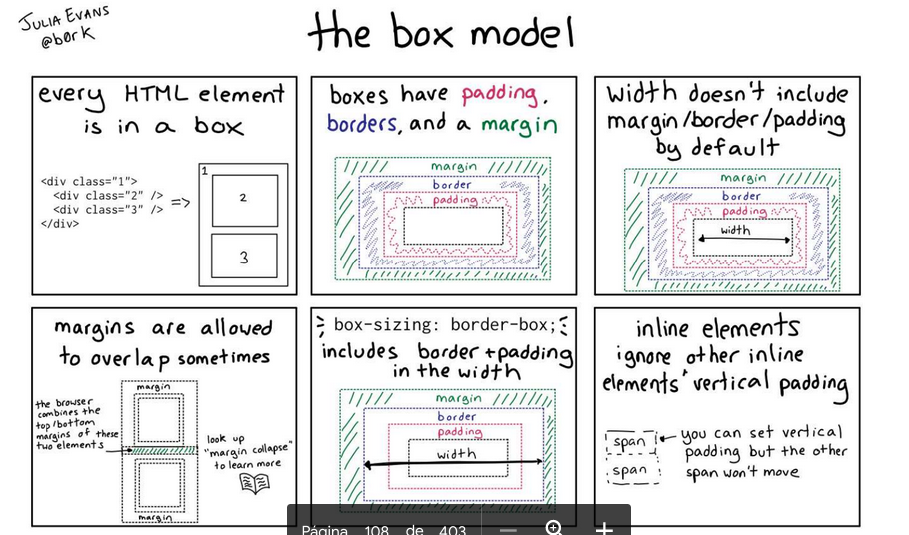 JULIA EVANS
@b0rk
the box model
every HTML element
is in a box
<div class="1">
<div class="2" />
<div class="3" />
</div>
=>
1
2
3
boxes have padding,
borders, and a margin
margin
border
padding
width doesn't include
margin/border/padding
by default
margin
border
padding
width
margins are allowed
to overlap sometimes
the browser
combines the
top/bottom
margins of these
two elements
margin
margin
look up
"margin collapse"
to learn more
box-sizing: border-box;
includes border + padding
in the width
margin
border
padding
width
inline elements
ignore other inline
elements' vertical padding
span
span
you can set vertical
padding but the other
span won't move
Página 108 de 403